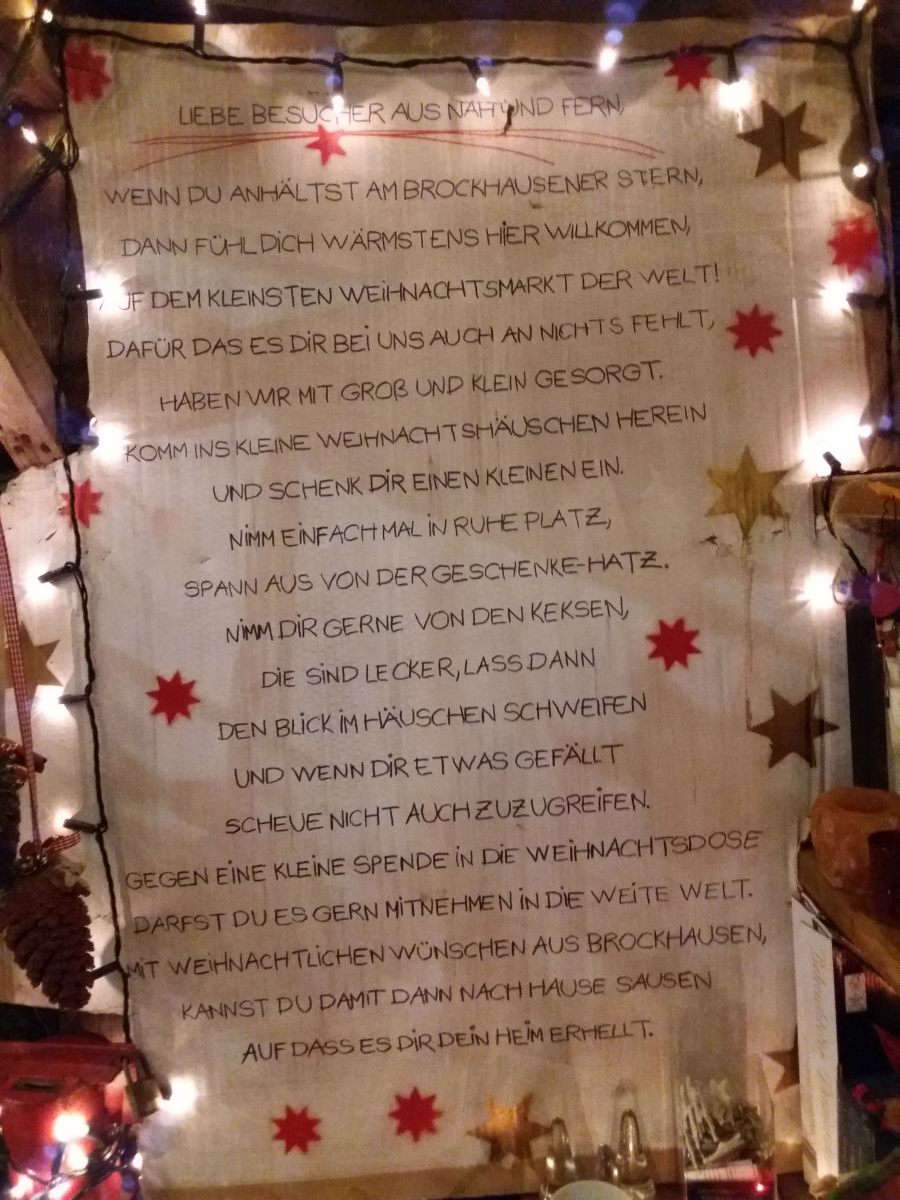 LIEBE BESUCHER AUS NAH UND FERN,
WENN DU ANHÄLTST AM BROCKHAUSENER STERN,
DANN FÜHL DICH WÄRMSTENS HIER WILLKOMMEN,
AUF DEM KLEINSTEN WEIHNACHTSMARKT DER WELT!
DAFÜR DAS ES DIR BEI UNS AUCH AN NICHTS FEHLT,
HABEN WIR MIT GROß UND KLEIN GESORGT.
KOMM INS KLEINE WEIHNACHTSHÄUSCHEN HEREIN
UND SCHENK DIR EINEN KLEINEN EIN.
NIMM EINFACH MAL IN RUHE PLATZ,
SPANN AUS VON DER GESCHENKE-HATZ.
NIMM DIR GERNE VON DEN KEKSEN,
DIE SIND LECKER, LASS DANN
DEN BLICK IM HÄUSCHEN SCHWEIFEN
UND WENN DIR ETWAS GEFÄLLT
SCHEUE NICHT AUCH ZUZUGREIFEN.
GEGEN EINE KLEINE SPENDE IN DIE WEIHNACHTSDOSE
DARFST DU ES GERN MITNEHMEN IN DIE WEITE WELT.
MIT WEIHNACHTLICHEN WÜNSCHEN AUS BROCKHAUSEN,
KANNST DU DAMIT DANN NACH HAUSE SAUSEN
AUF DASS ES DIR DEIN HEIM ERHELLT.